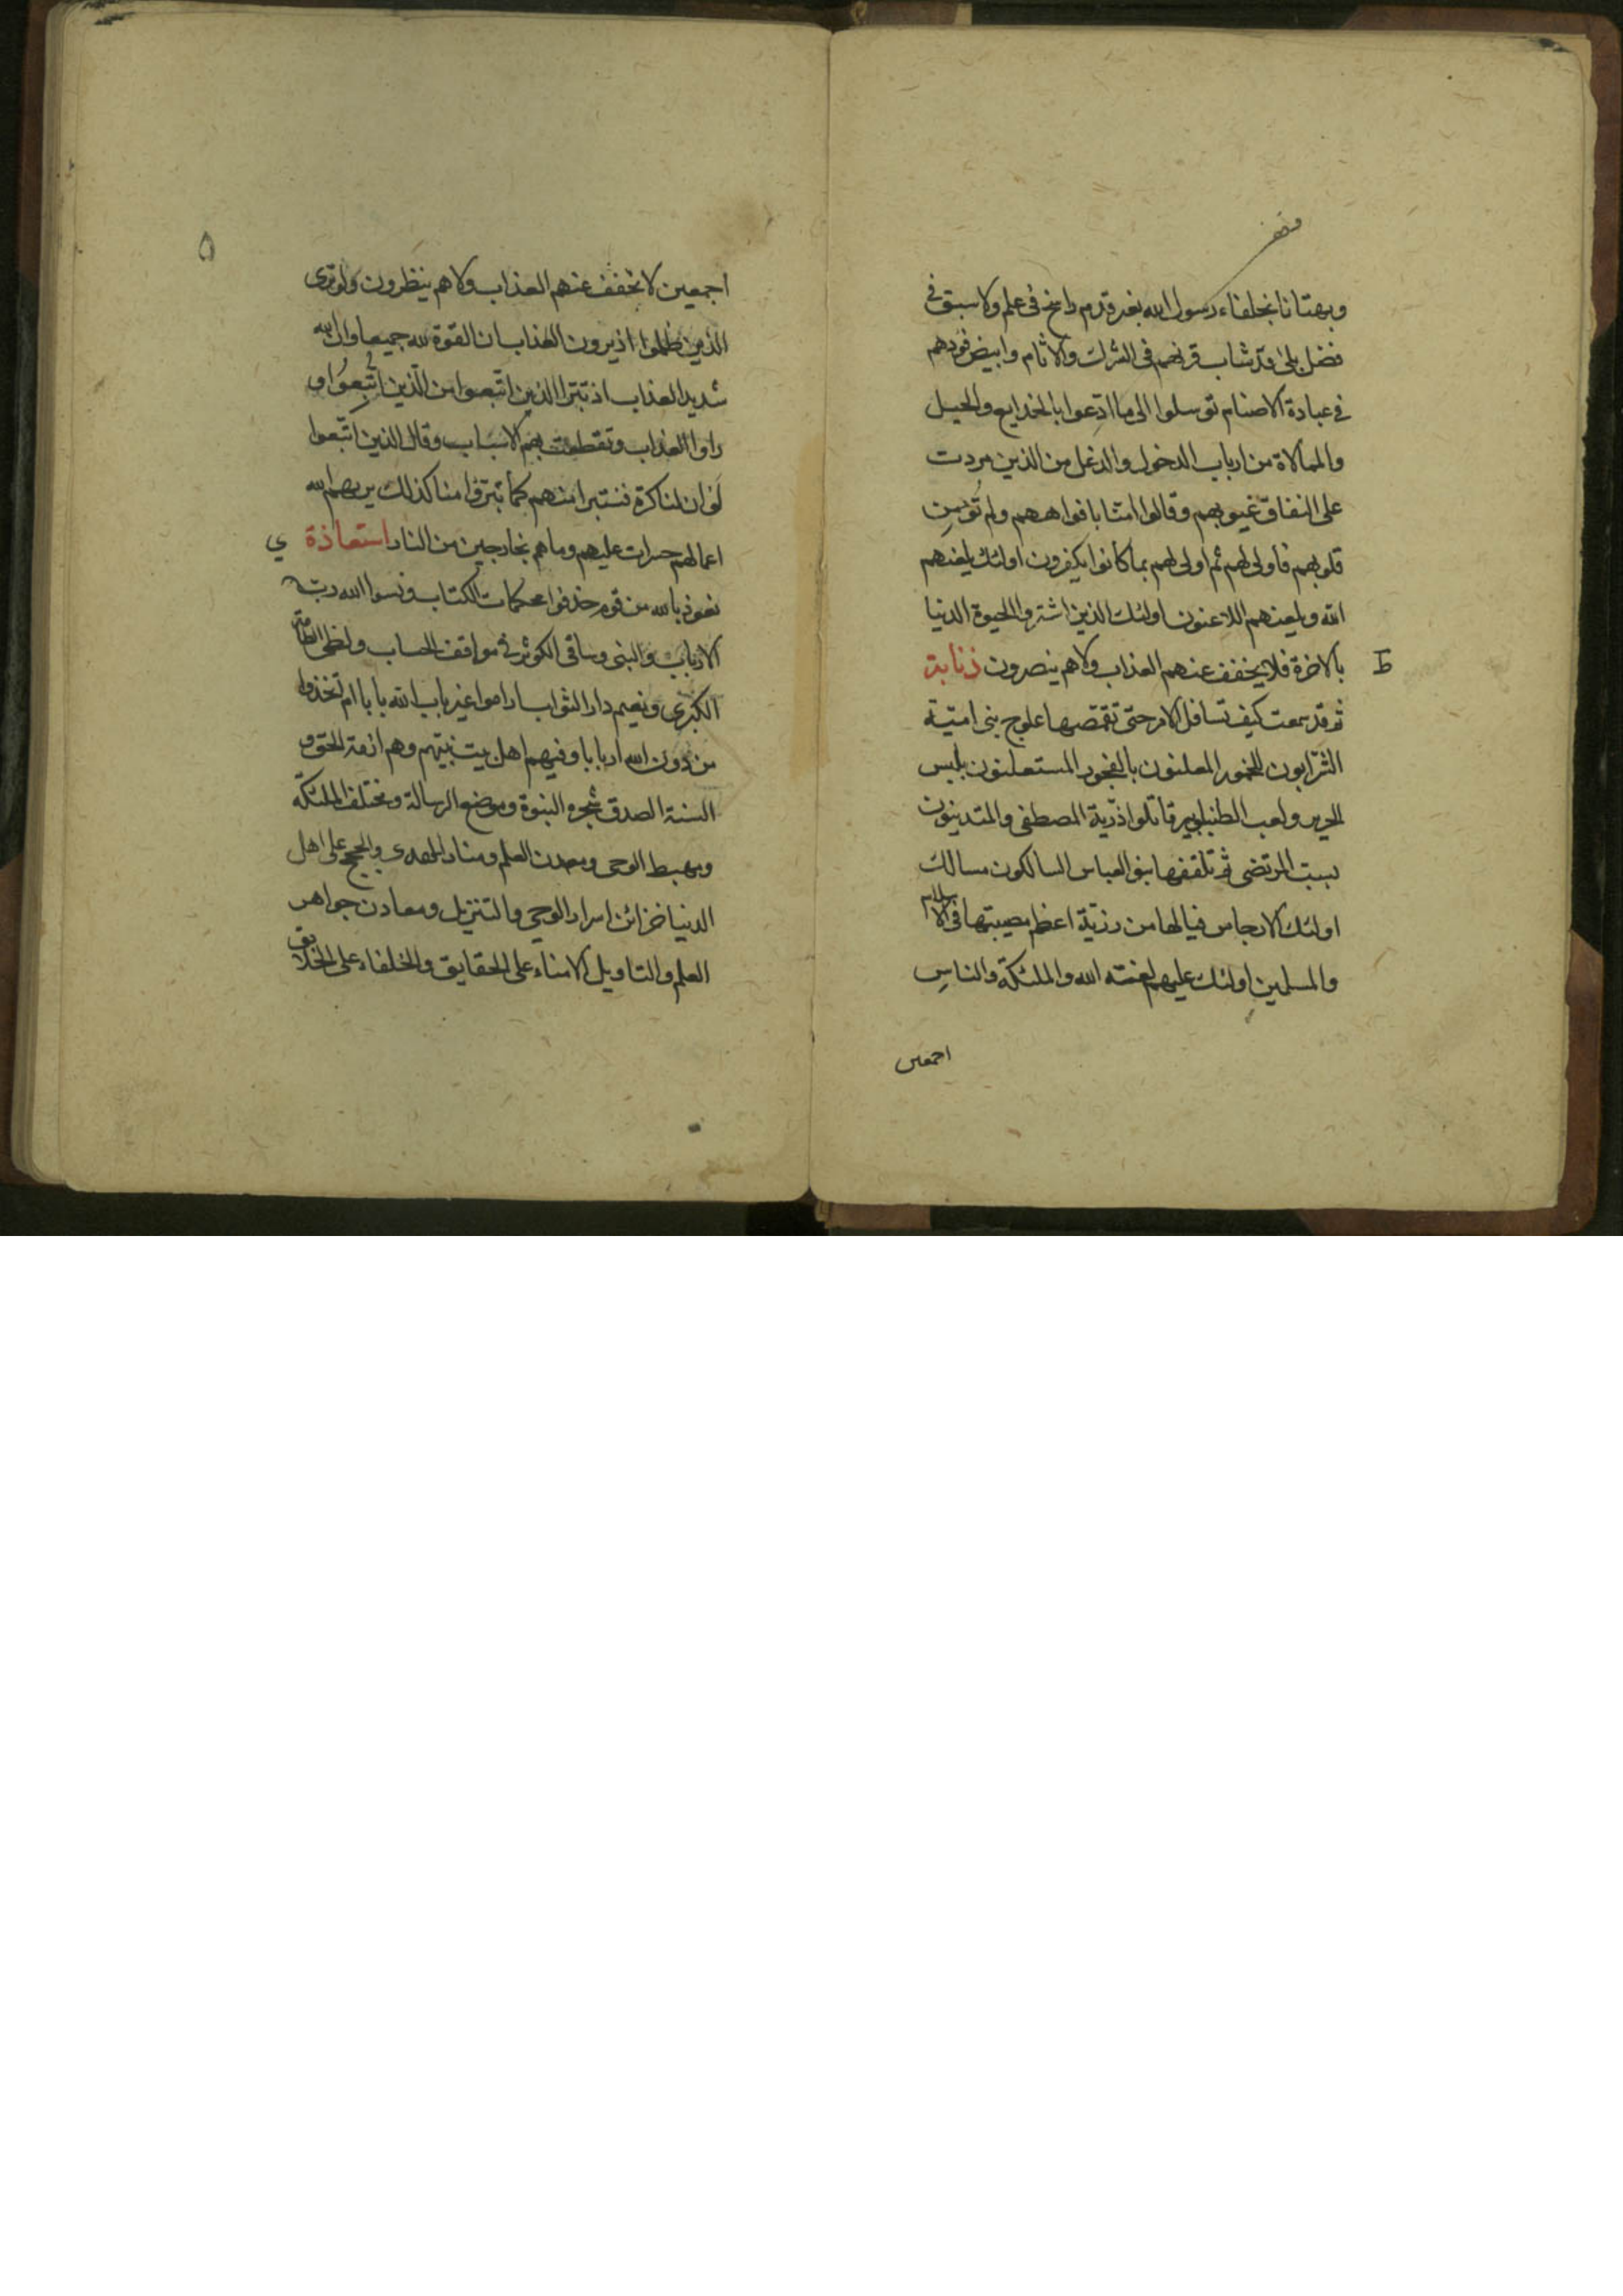 وبهتانا بخلفاء رسول الله بغير قدم راسخ فى علم ولا سبق فى
فضل بلى قد شاب قرنهم فى الشرك والاثام وابيض فودهم
فى عبادة الاصنام توسلوا الى ما ادعوا بالخدايع والحيل
والممالاة من ارباب الدخول والدغل من الذين مردت
على النفاق غيوبهم وقالوا امنا بافواههم ولم تؤمن
قلوبهم فاولى لهم ثم اولى لهم بما كانوا يكفرون اولئك يلعنهم
الله ويلعنهم اللاعنون اولئك الذين اشتروا الحيوة الدنيا
بالاخرة فلا يخفف عنهم العذاب ولا هم ينصرون ذنابة
ط
ثم قد سمعت كيف تسافل الامر حتى تقمصها علوج بنى امية
الشرّابون للخمور المعلنون بالفجور المستعلنون بلبس
الحرير ولعب الطنابير قاتلوا ذرّية المصطفى والمتدينون
بسبّ المرتضى ثم تلقفها بنو العباس السالكون مسالك
اولئك الارجاس فيا لها من رزيّة اعظم مصيبتها فى الاسلام
والمسلمين اولئك عليهم لعنة الله والملئكة والناس
اجمعين
۵
اجمعين لا يخفف عنهم العذاب ولا هم ينظرون ولو ترى
الذين ظلموا اذ يرون العذاب ان القوة لله جميعا وان الله
شديد العذاب اذ تبرّا الذين اتّبعوا من الّذين اتّبعوا و
راوا العذاب وتقطعت بهم الاسباب وقال الذين اتّبعوا
لو ان لنا كرة فنتبرا منهم كما تبرّؤا منا كذلك يريهم الله
اعمالهم حسرات عليهم وما هم بخارجين من النار استعاذة
ي
نعوذ بالله من قوم حذفوا محكمات الكتاب ونسوا الله ربّ
الارباب والنبى وساقى الكوثر فى مواقف الحساب ولظى الطامّة
الكبرى ونعيم دار الثواب راموا غير باب الله بابا ام تخذوا
من دون الله اربابا وفيهم اهل بيت نبيّهم وهم ازمّة الحق و
السنة الصدق شجرة النبوة وموضع الرسالة ومختلف الملئكة
ومهبط الوحى ومعدن العلم ومنار الهدى والحجج على اهل
الدنيا خزائن اسرار الوحى والتنزيل ومعادن جواهر
العلم والتاويل الامناء على الحقايق والخلفاء على الخلايق